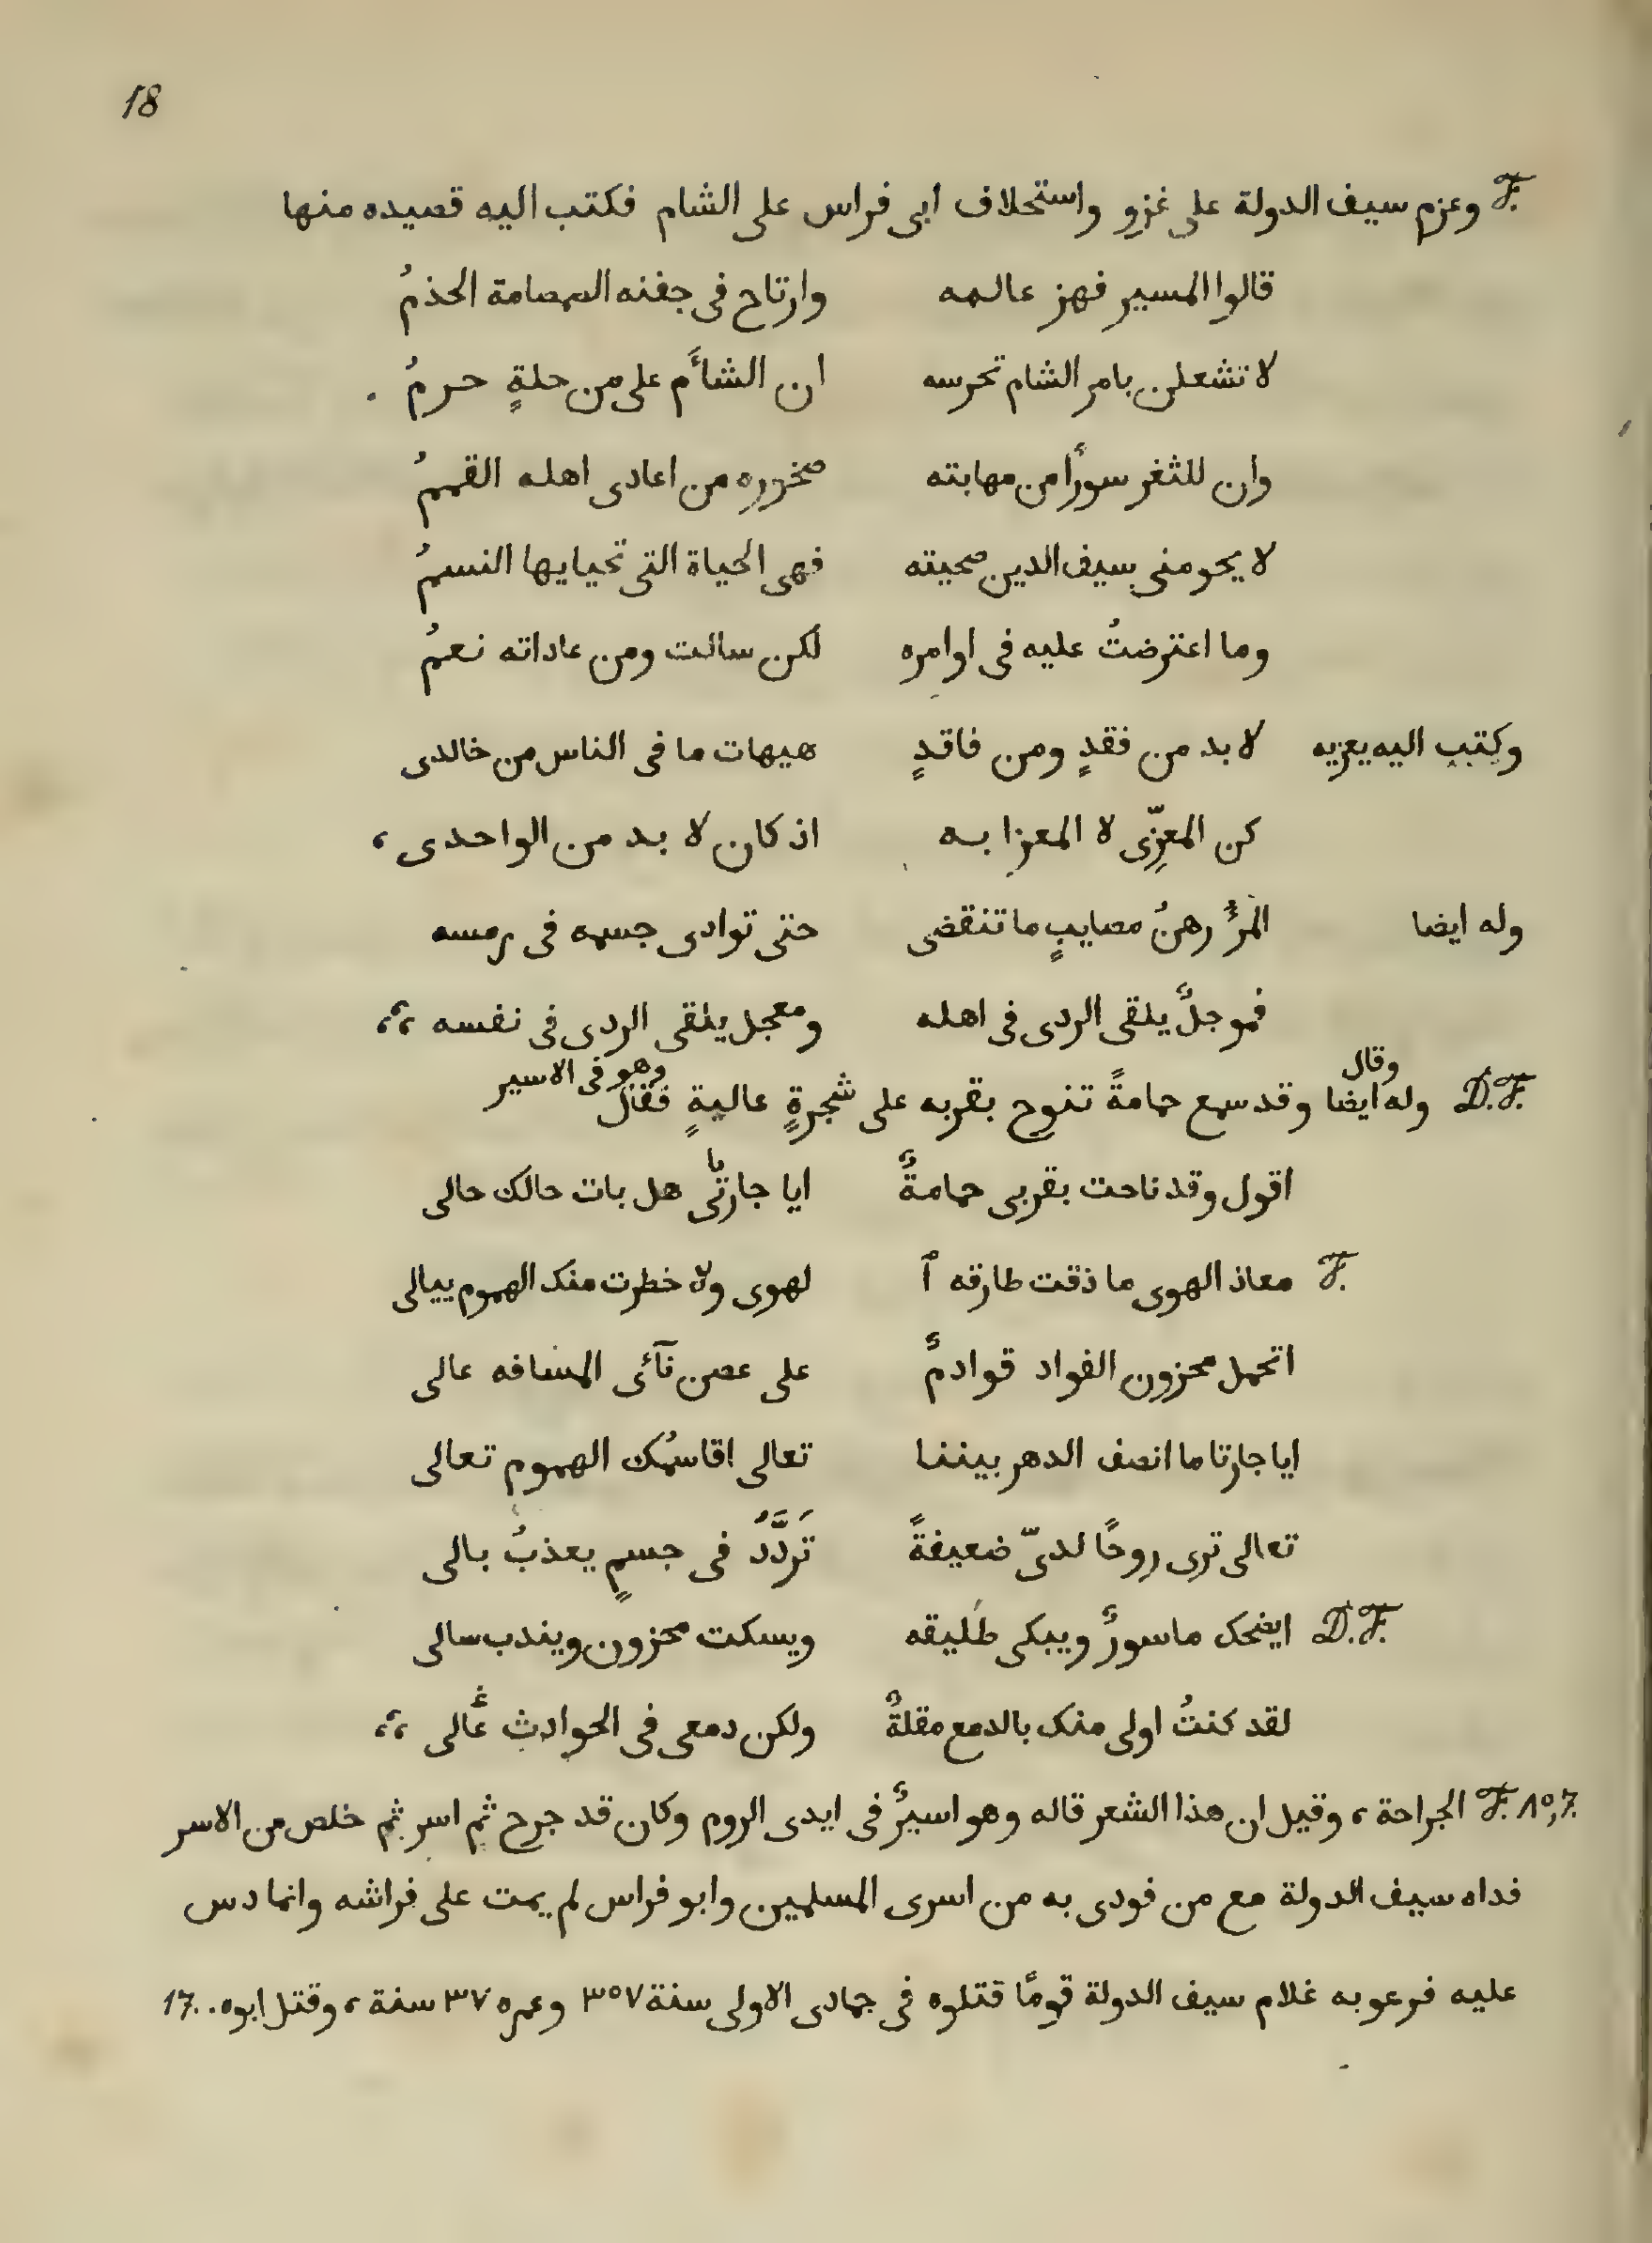 18
F. وعزم سيف الدولة على غزو واستحلاف ابى فراس على الشام فكتب اليه قصيده منها
قالوا المسير فهز عالمه وارتاح فى جفنه الصمصامة الحذمُ
لا تشعلن بامر الشام تحرسه ان الشأم على من حلةٍ حرمُ .
وان للثغر سورًا من مهابته صخوره من اعادى اهله القممُ
لا يحومنى بسيف الدين صحبته فهى الحياة التى تحيايها النسمُ
وما اعترضتُ عليه فى اوامره لكن سالت ومن عاداته نعمُ
وكتب اليه يعزيه لا بد من فقدٍ ومن فاقدٍ هيهات ما فى الناس من خالدى
كن المعزِّى لا المعزا به اذ كان لا بد من الواحدى ،
وله ايضا المرُؤ رهنُ مصايبٍ ما تنقضى حتى توادى جسمه فى رمسه
فموجلٌ يلقى الردى فى اهله ومعجل يلقى الردى فى نفسه ،،
وقال وهو فى الاسير
D.F. وله ايضا وقد سمع حمامةً تنوح بقربه على شجرةٍ عاليةٍ فقال
اقول وقد ناحت بقربى حمامةٌ ايا جارتى يا هل بات حالك حالى
F. معاذ الهوى ما ذقت طارقه ٱ لهوى ولا خطرت منك الهموم ببالى
اتحمل محزون الفواد قوادمٌ على عصن نآئى المسافه عالى
ايا جارتا ما انصف الدهر بيننا تعالى اقاسمُك الهموم تعالى
تعالى ترى روحًا لدىّ ضعيفةً تَردَّدُ فى جسمٍ يعذبُ بالى
D.F. ايضحك ماسورٌ ويبكى طَليقه ويسكت محزون ويندب سالى
لقد كنتُ اولى منك بالدمع مقلةٌ ولكن دمعى فى الحوادث غالى ،،
F. ١٥,7. الجراحة ، وقيل ان هذا الشعر قاله وهو اسيرٌ فى ايدى الروم وكان قد جرح ثم اسر ثم خلص من الاسر
فداه سيف الدولة مع من فودى به من اسرى المسلمين وابو فراس لم يمت على فراشه وانما دس
عليه فرعوبه غلام سيف الدولة قومًا قتلوه فى جمادى الاولى سنة ٣٥٧ وعمره ٣٧ سنة ، وقتل ابوه . . 17